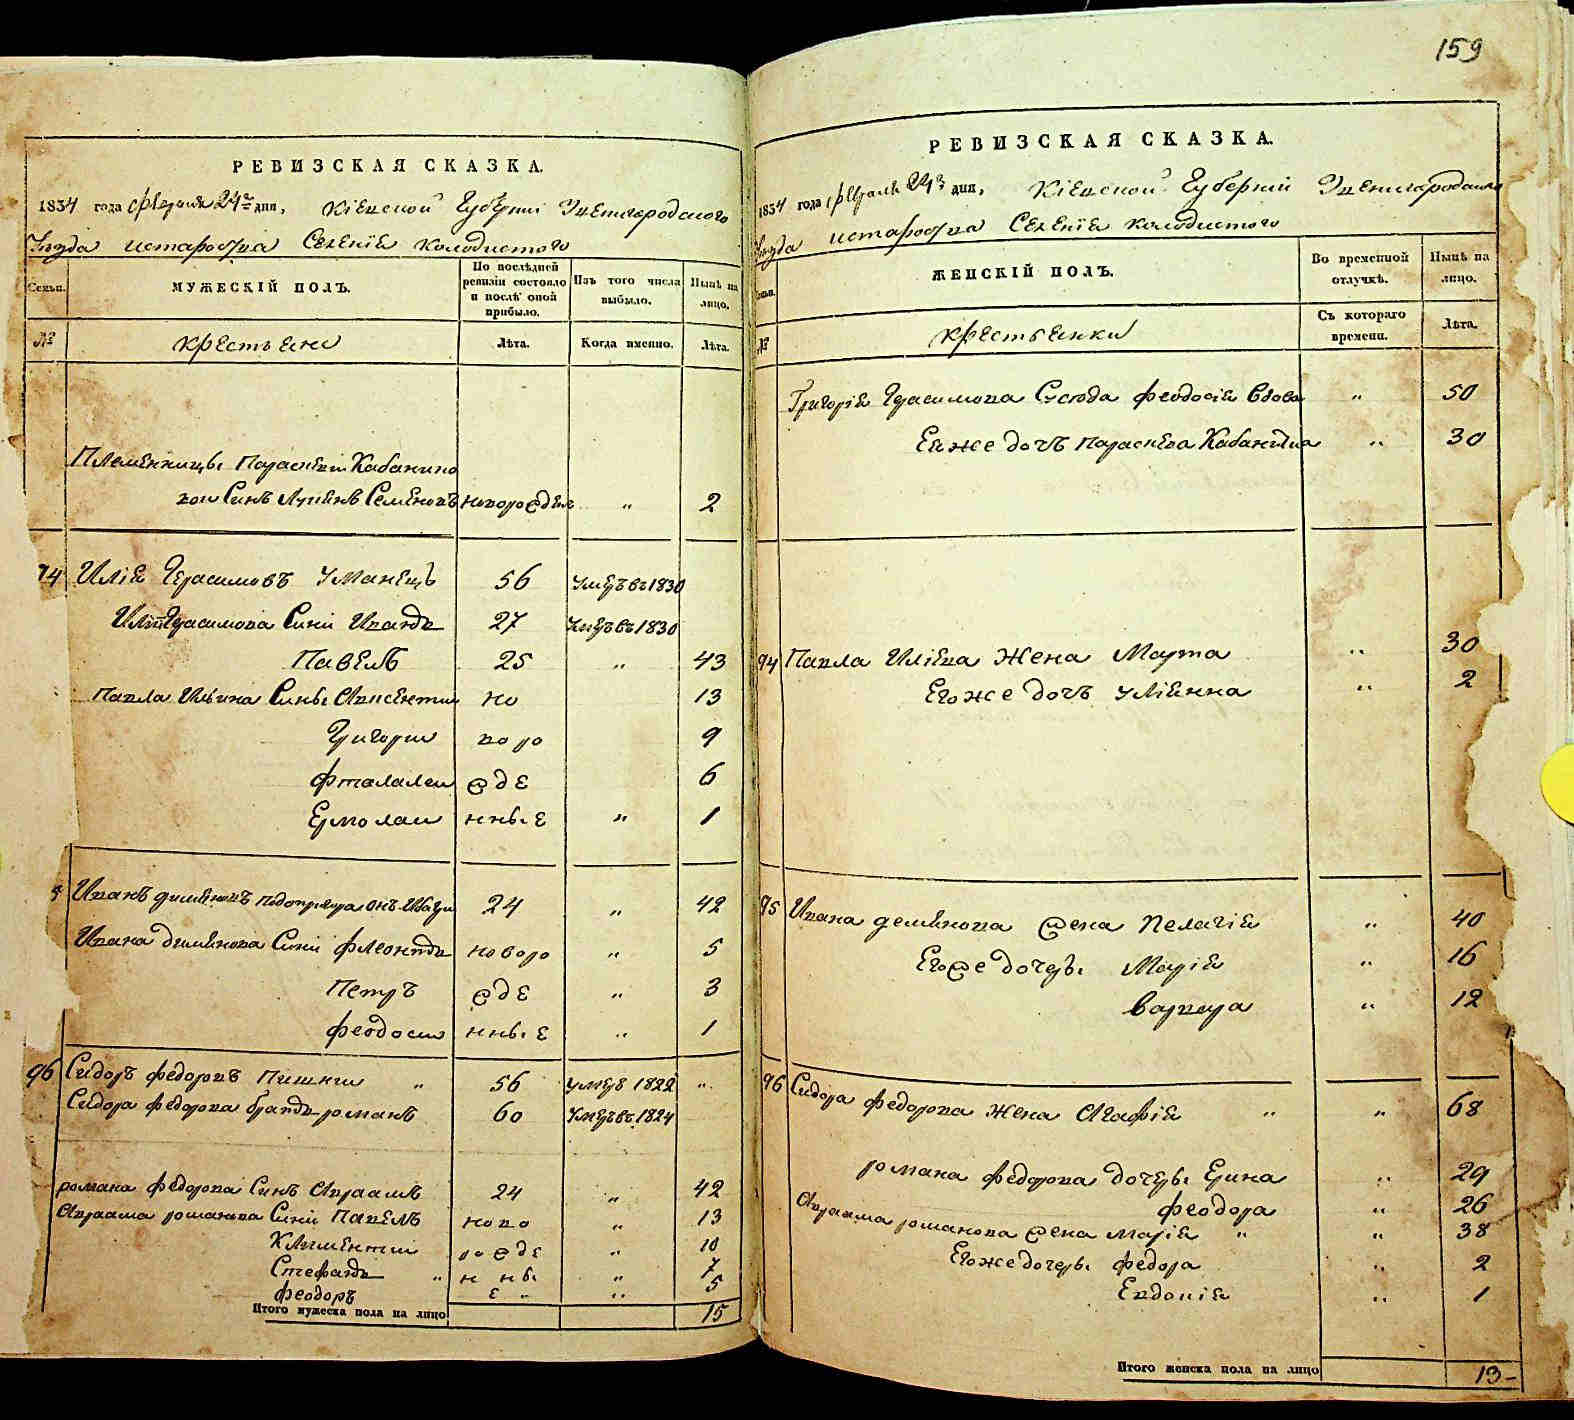 159
РЕВИЗСКАЯ СКАЗКА.
1834 года февраля 24го дня, Кіевской Губерніи Звенигородского
Уезда и староства Селенїе Колодистого
Семьи. МУЖЕСКІЙ ПОЛЪ. По послѣдней ревизіи состояло и послѣ оной прибыло. Изъ того числа выбыло. Нынѣ на лицо.
№ крестьяни Лѣта. Когда именно. Лѣта.
Племенницы Параскевіи Кабанино
вои Синъ Семеновъ новорожден „ 2
94 Иліа Герасимовъ Уманецъ 56 умеръ въ 1830
Герасимова Сини Иванъ 27 умеръ въ 1830
Павелъ 25 „ 43
Павла Ильина Сины Авксентии но 13
Григории воро 9
Фталалеи жде 6
Ермолаи нные „ 1
Иванъ Деменовъ 24 „ 42
Ивана Деменова Сини Леонтіи новоро „ 5
Петръ жде „ 3
Феодоси нные „ 1
96 Сидоръ Федоровъ 56 умеръ 1822 „
Сидора Федорова братъ романъ 60 умеръ въ 1824
романа Федорова Синъ Авраамъ 24 „ 42
Авраама романова Сини Павелъ ново „ 13
Климентии рожде „ 10
Стефанъ „ н ны „ 7
Феодоръ е „ „ 5
Итого мужеска пола на лицо 15
РЕВИЗСКАЯ СКАЗКА.
1834 года февраля 24го дня, Кіевской Губерніи Звенигородского
Уезда и староства Селенїе Колодистого
Семьи. ЖЕНСКІЙ ПОЛЪ. Во временной отлучкѣ. Нынѣ на лицо.
№ крестьянки Съ котораго времени. Лѣта.
Григоріа Герасимова Феодосіа вдова „ 50
Еи же дочъ Параскева Кабанина „ 30
94 Павла Иліева Жена Марта „ 30
Его же дочъ Улиенна „ 2
95 Ивана Деменова жена Пелагіа „ 40
Его же дочеры Маріа „ 16
Варвара „ 12
96 Сидора Федорова Жена Агафіа „ „ 68
романа Федорова дочеры Ерина „ 29
Феодора „ 26
Авраама романова жена Маріа „ „ 38
Его же дочеры Федора „ 2
Евдокіа „ 1
Итого женска пола на лицо 13